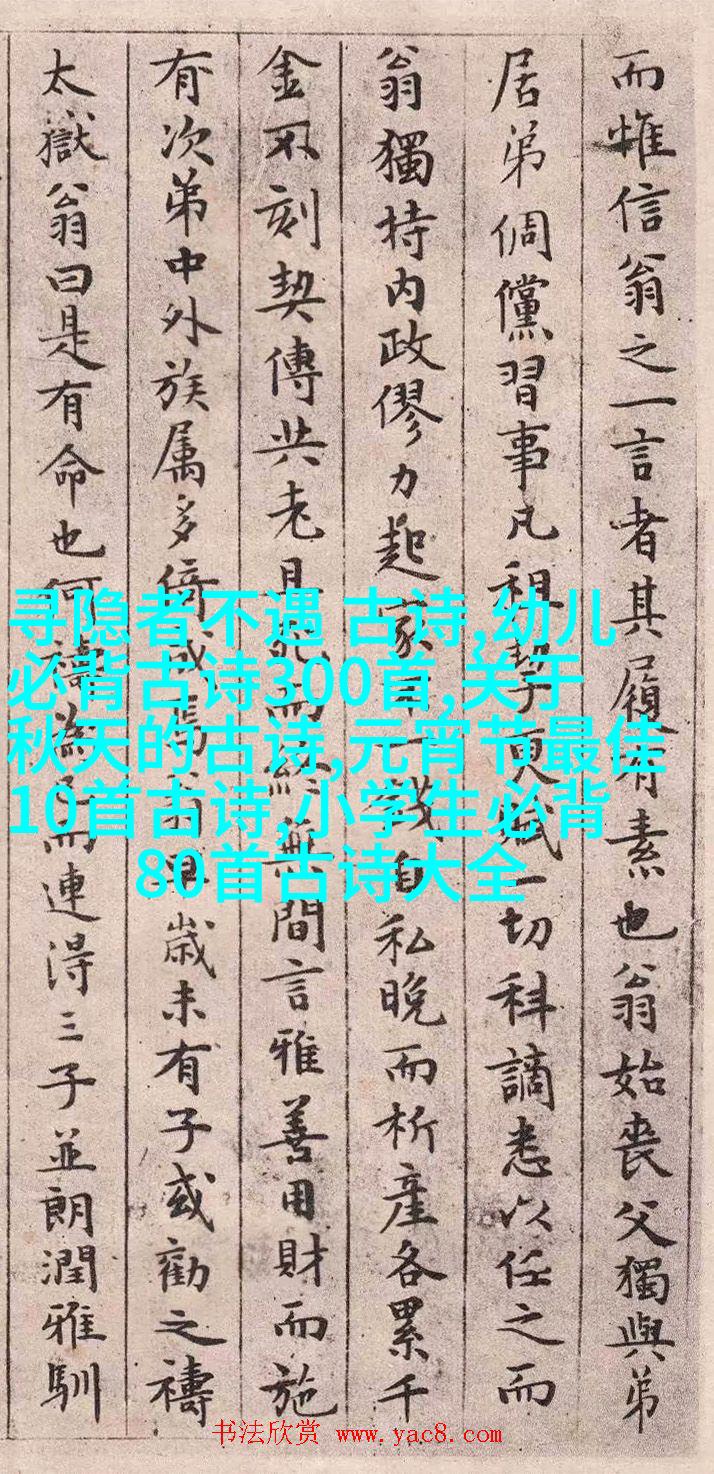 而惟信翁之一言者其履有素也翁始喪父獨與弟
居弟倜儻習事凡租挈更賦一切科謫悉以任之而
翁獨持内政僇力起家不一錢自私晚而析産各累千
金不刻契傳共老且死而終無間言雅善用財而施
有次弟中外族属多倚成焉翁早歳未有子或勸之禱
太獄翁曰是有命也何禱為已而連得三子並朗潤雅馴
寻隐者不遇 古诗,幼儿
必背古诗300首,关于
秋天的古诗,元宵节最佳
10首古诗,小学生必背
80首古诗大全
书法欣赏 www.yac8.com